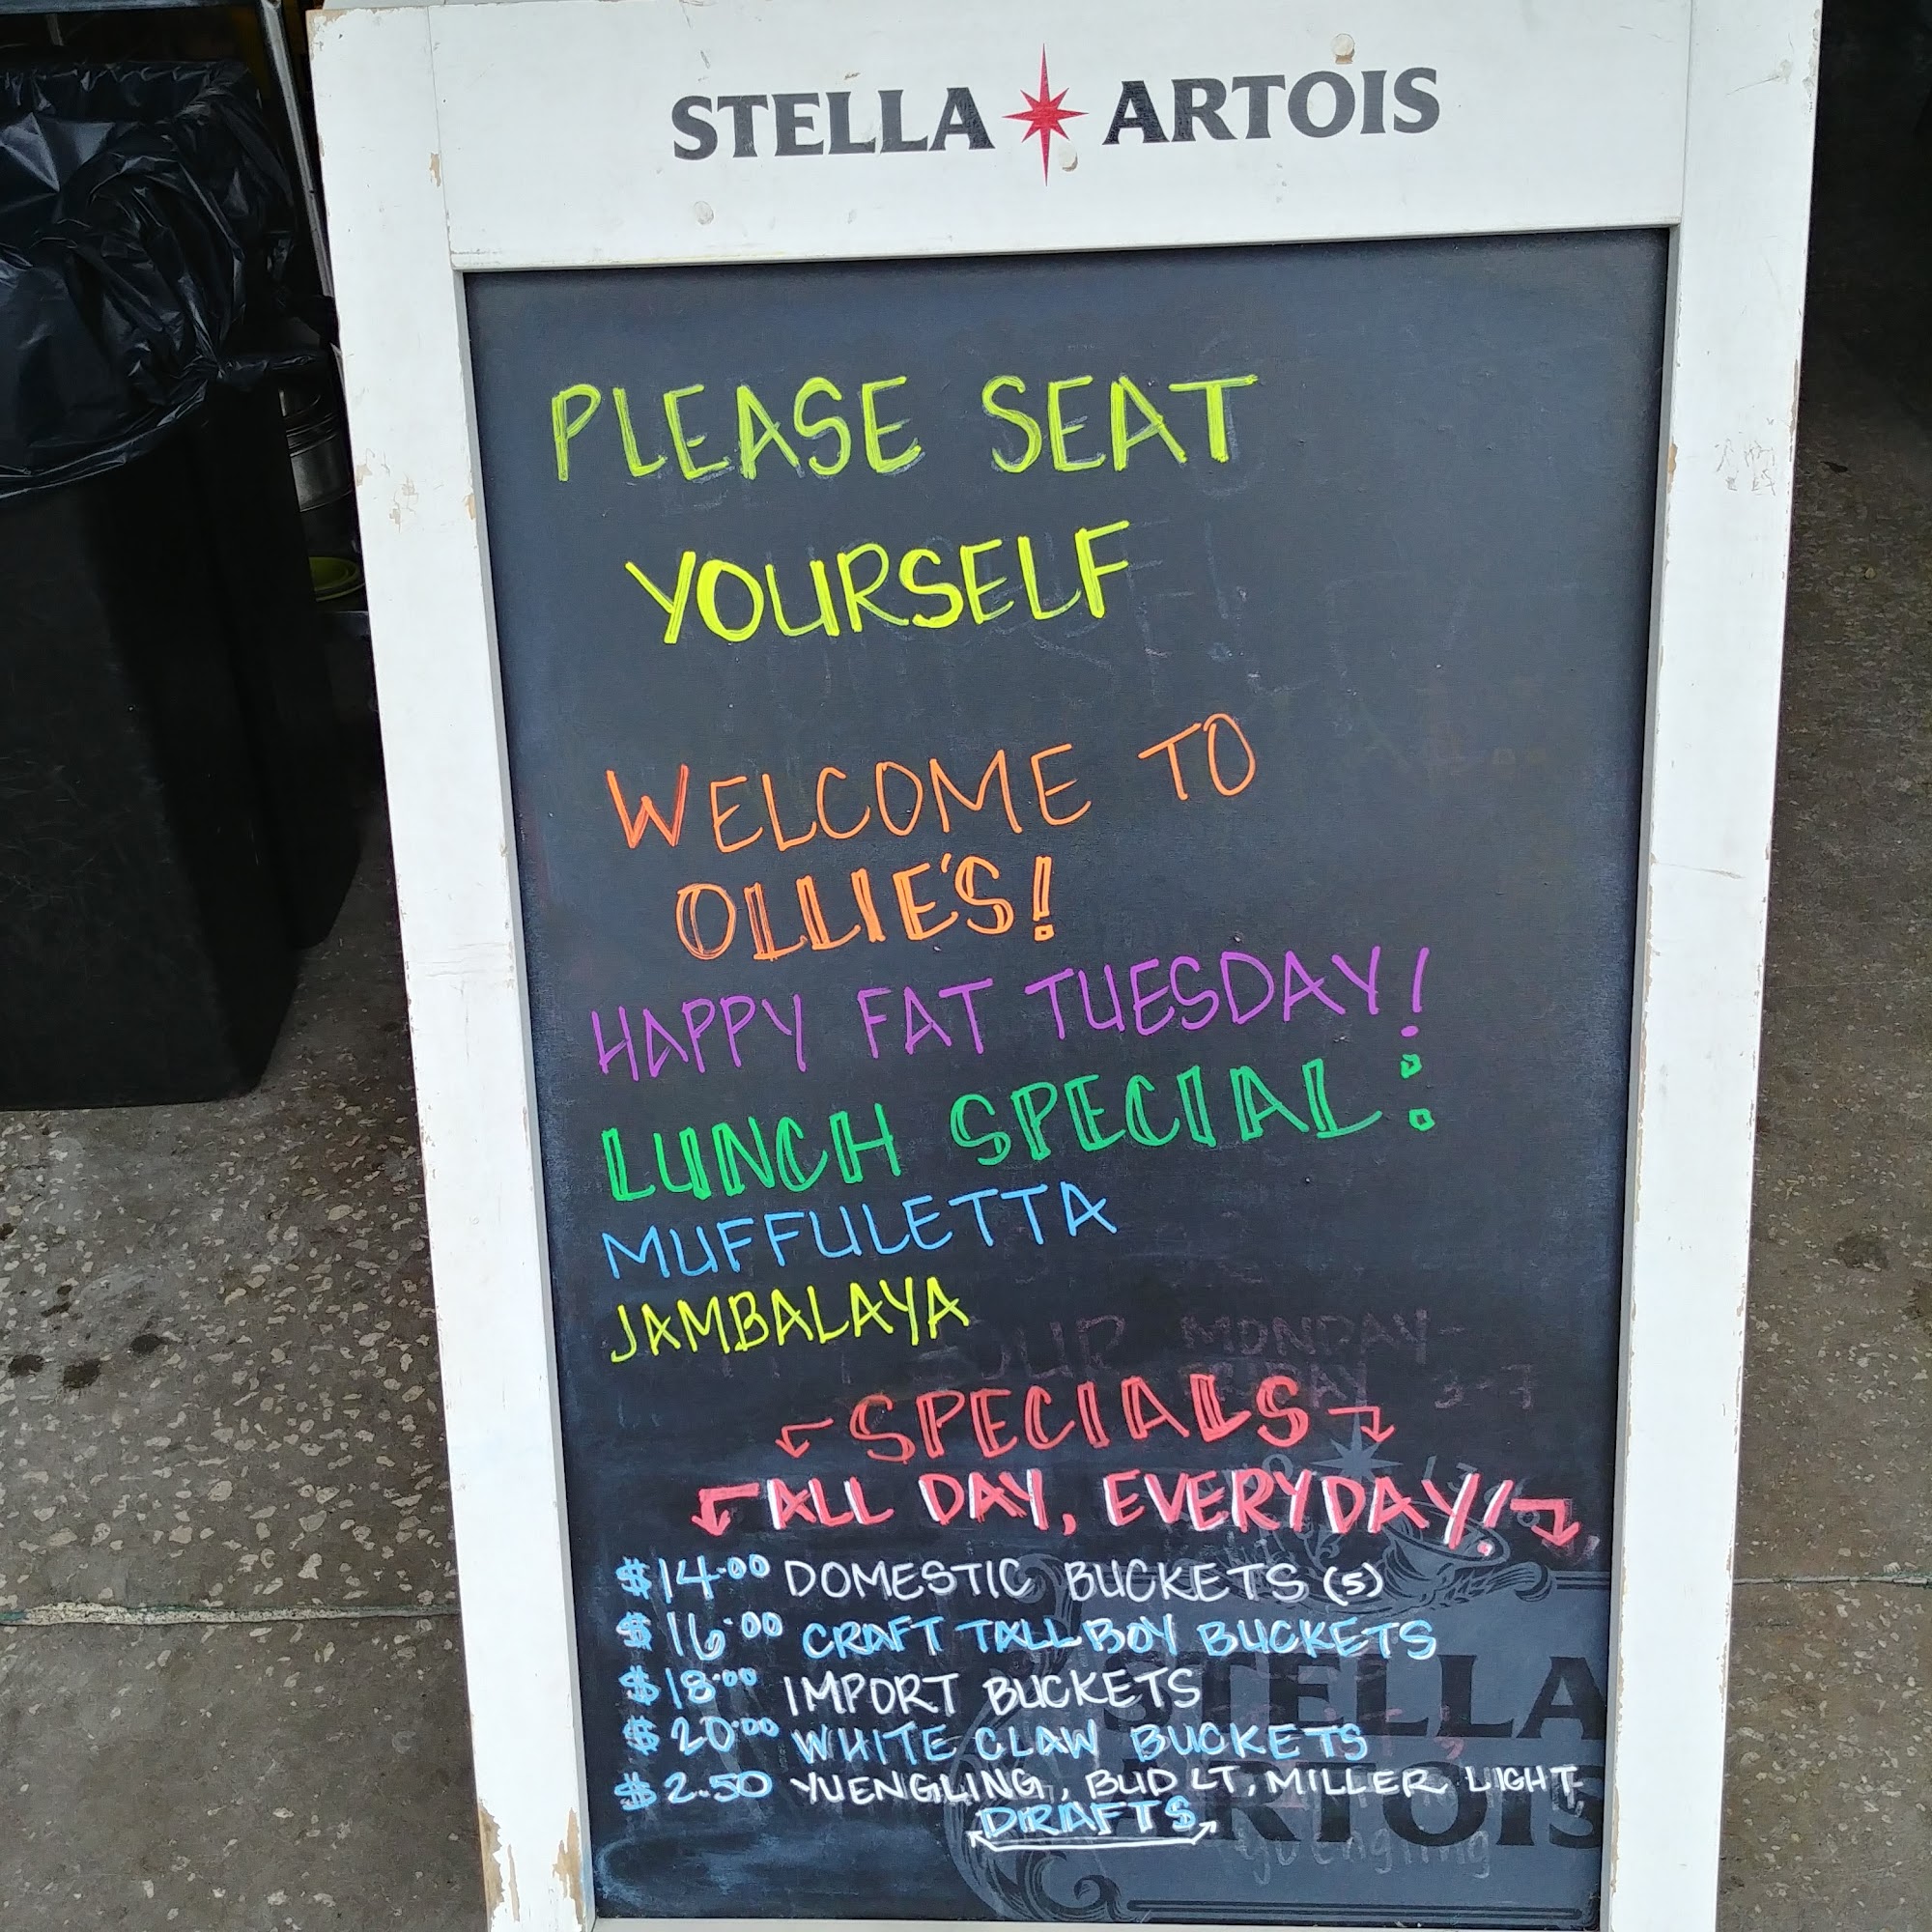 STELLA ARTOIS
PLEASE SEAT
YOURSELF
WELCOME TO
OLLIE'S!
HAPPY FAT TUESDAY!
LUNCH SPECIAL:
MUFFULETTA
JAMBALAYA
MONDAY-
3-7
SPECIALS
ALL DAY, EVERYDAY!
$14.00 DOMESTIC BUCKETS (5)
$16.00 CRAFT TALLBOY BUCKETS
$18.00 IMPORT BUCKETS
$20.00 WHITE CLAW BUCKETS
$2.50 YUENGLING, BUD LT, MILLER LIGHT
DRAFTS
STELLA
ARTOIS
yuengling